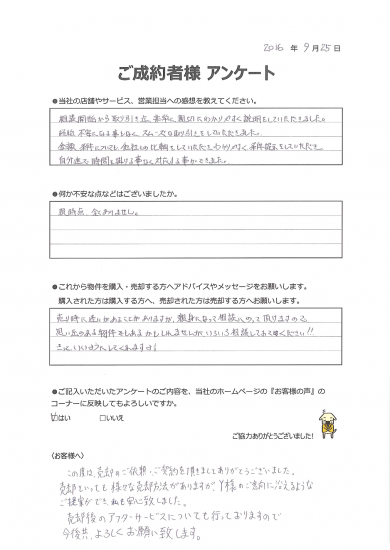 2016 年 9 月 25 日
ご成約者様 アンケート
●当社の店舗やサービス、営業担当への感想を教えてください。
から取り引き迄、非常に親切にわかりやすく説明をしていただきました。
不安になる事もなく、スムーズな取引きをしていただきました。
金額、条件についても、他社との比較をしていただきわかりやすく条件提示をしていただき、
自分達で時間を掛ける事なく対応する事ができました。
●何か不安な点などはございましたか。
現時点、全くありません。
●これから物件を購入・売却する方へアドバイスやメッセージをお願いします。
購入された方は購入する方へ、売却された方は売却する方へお願いします。
売り時に迷いがあることがありますが、親身になって相談にのって頂けますので
思い出のある物件でもあるかもしれませんが、いろいろ相談してみて下さい!!
きっと、いいほうへしてくれますよ!
●ご記入いただいたアンケートのご内容を、当社のホームページの『お客様の声』の
コーナーに反映してもよろしいですか。
☑はい □いいえ
ご協力ありがとうございました!
〈お客様へ〉
この度は、売却のご依頼・ご契約を頂きましてありがとうございました。
売却といっても様々な売却方法がありますがY様のご意向に沿えるような
ご提案ができ、私も安心致しました。
売却後のアフターサービスについても行っておりますので
今後共、よろしくお願い致します。